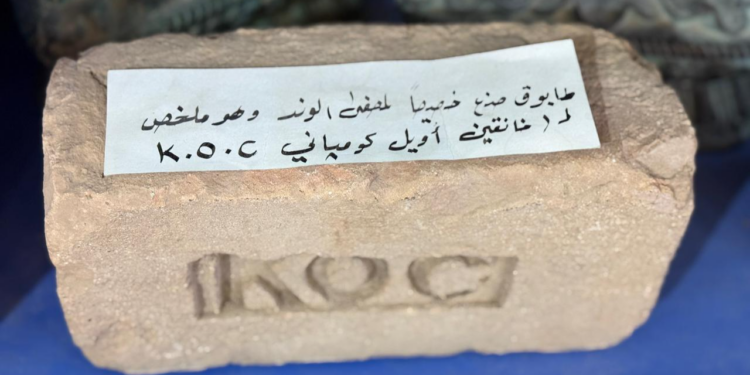 طابوق صنع خصيصاً لمصفى الوند وهو ملخص
لـ ( خانقين أويل كومپاني K.O.C
KOC